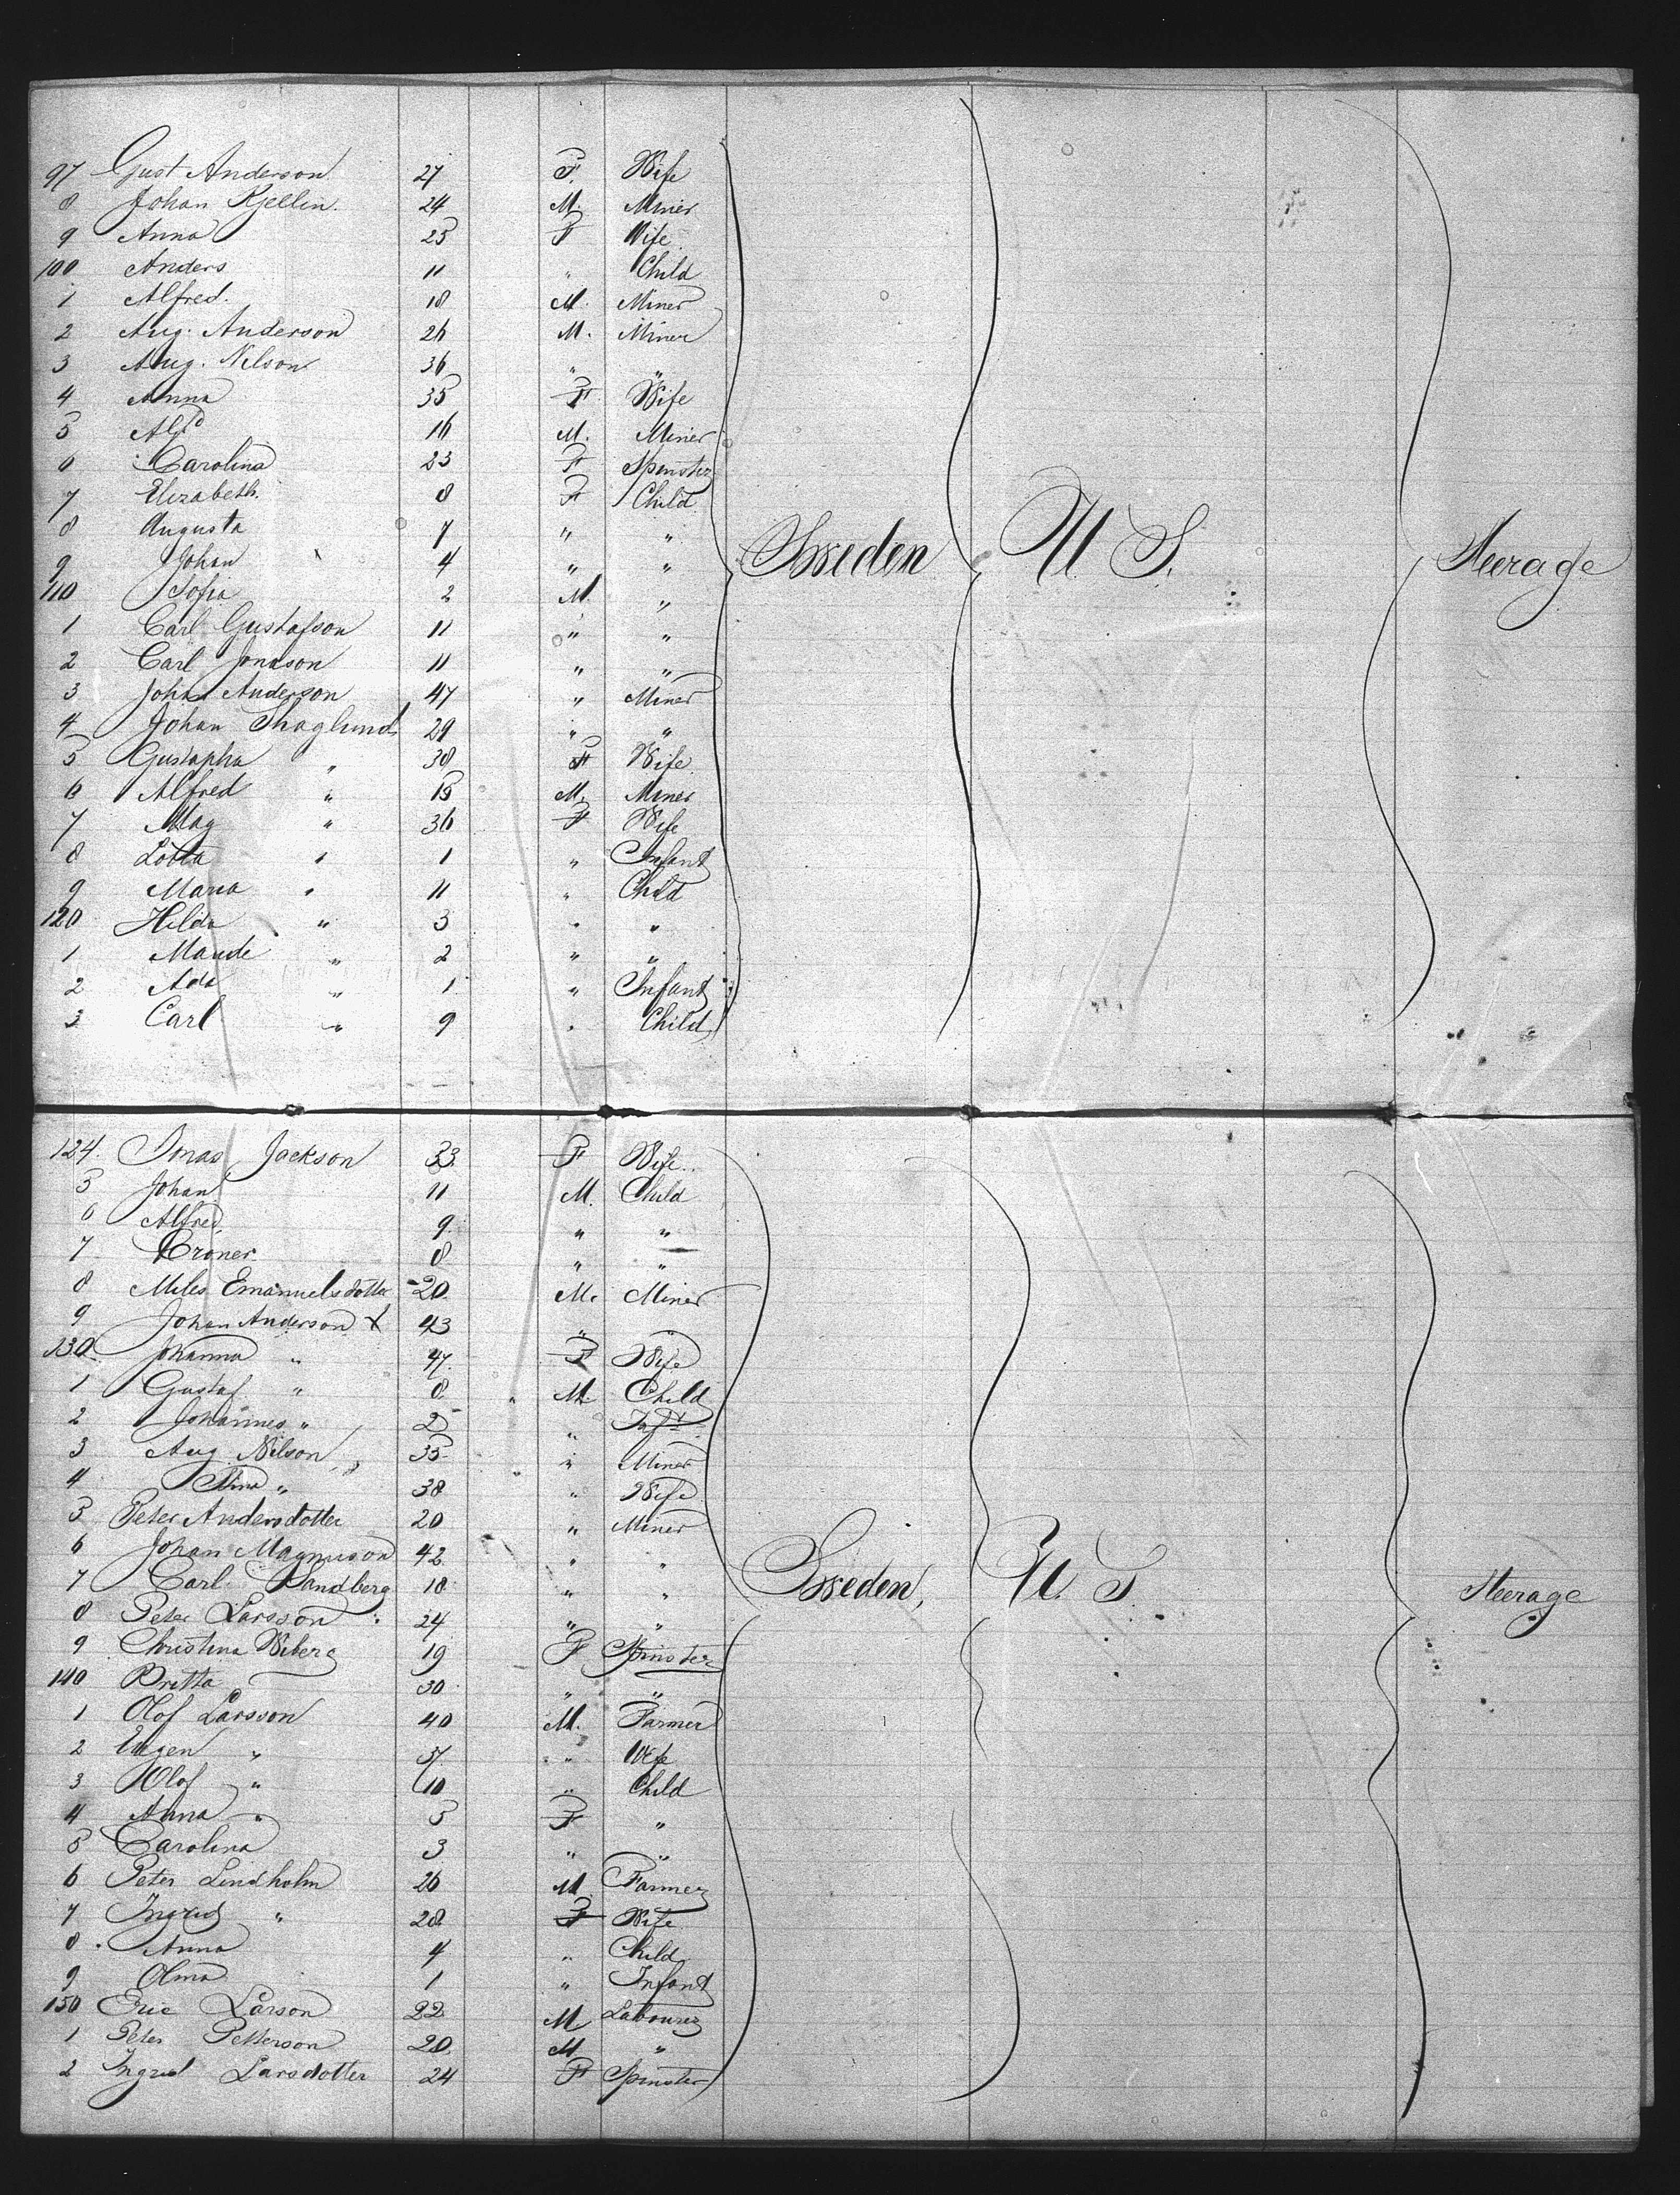 97 Gust Anderson 27 F. Wife
8 Johan Kjellin. 24 M. Miner
9 Anna 25 F Wife
100 Anders 11 " Child
1 Alfred. 18 M. Miner
2 Aug. Anderson 26 M. Miner
3 Aug. Nilson 36 " "
4 Anna 35 F Wife
5 Alfd 16 M. Miner
6 Carolina 23 F Spinster
7 Elizabeth. 8 F Child
8 Augusta 7 " "
9 Johan 4 " "
Sweden U S. Steerage
110 Sofia 2 M. "
1 Carl Gustafson 11 " "
2 Carl Jonason 11 " "
3 John Anderson 47 " Miner
4 Johan Skaglund 29 " "
5 Gustapha " 38 F Wife
6 Alfred " 15 M. Miner
7 Mag " 36 F Wife
8 Lotta " 1 " Infant
9 Maria " 11 " Child
120 Hilda " 3 " "
1 Maude " 2 " "
2 Ada " 1 " Infant
3 Carl " 9 " Child
124. Jonas Jackson 33 F Wife
5 Johan 11 M. Child
6 Alfred 9 " "
7 Croner 8 " "
8 Miles Emanuelsdotter 20 M. Miner
9 Johan Anderson x 43 " "
130 Johanna " 47 F Wife
1 Gustaf " 8 M. Child
2 Johannes " 2 " Inft
3 Aug Nilson 35 " Miner
4 " 38 " Wife
5 Peter Andersdotter 20 " Miner
6 Johan Magnuson 42 " "
7 Carl Sandberg 18 " "
Sweden, U. S Steerage
8 Peter Larsson 24 " "
9 Christina Wiberg 19 F Spinster
140 Britta 30 " "
1 Olof Larsson 40 M. Farmer
2 " 37 " Wife
3 Olof " 10 " Child
4 Anna " 5 F "
5 Carolina 3 " "
6 Peter Lindholm 26 M Farmer
7 Ingrid " 28 F Wife
8 Anna 4 " Child
9 Olma 1 " Infant
150 Eric Larson 22 M Labourer
1 Peter Petterson 20 M "
2 Ingrid Larsdotter 24 F Spinster